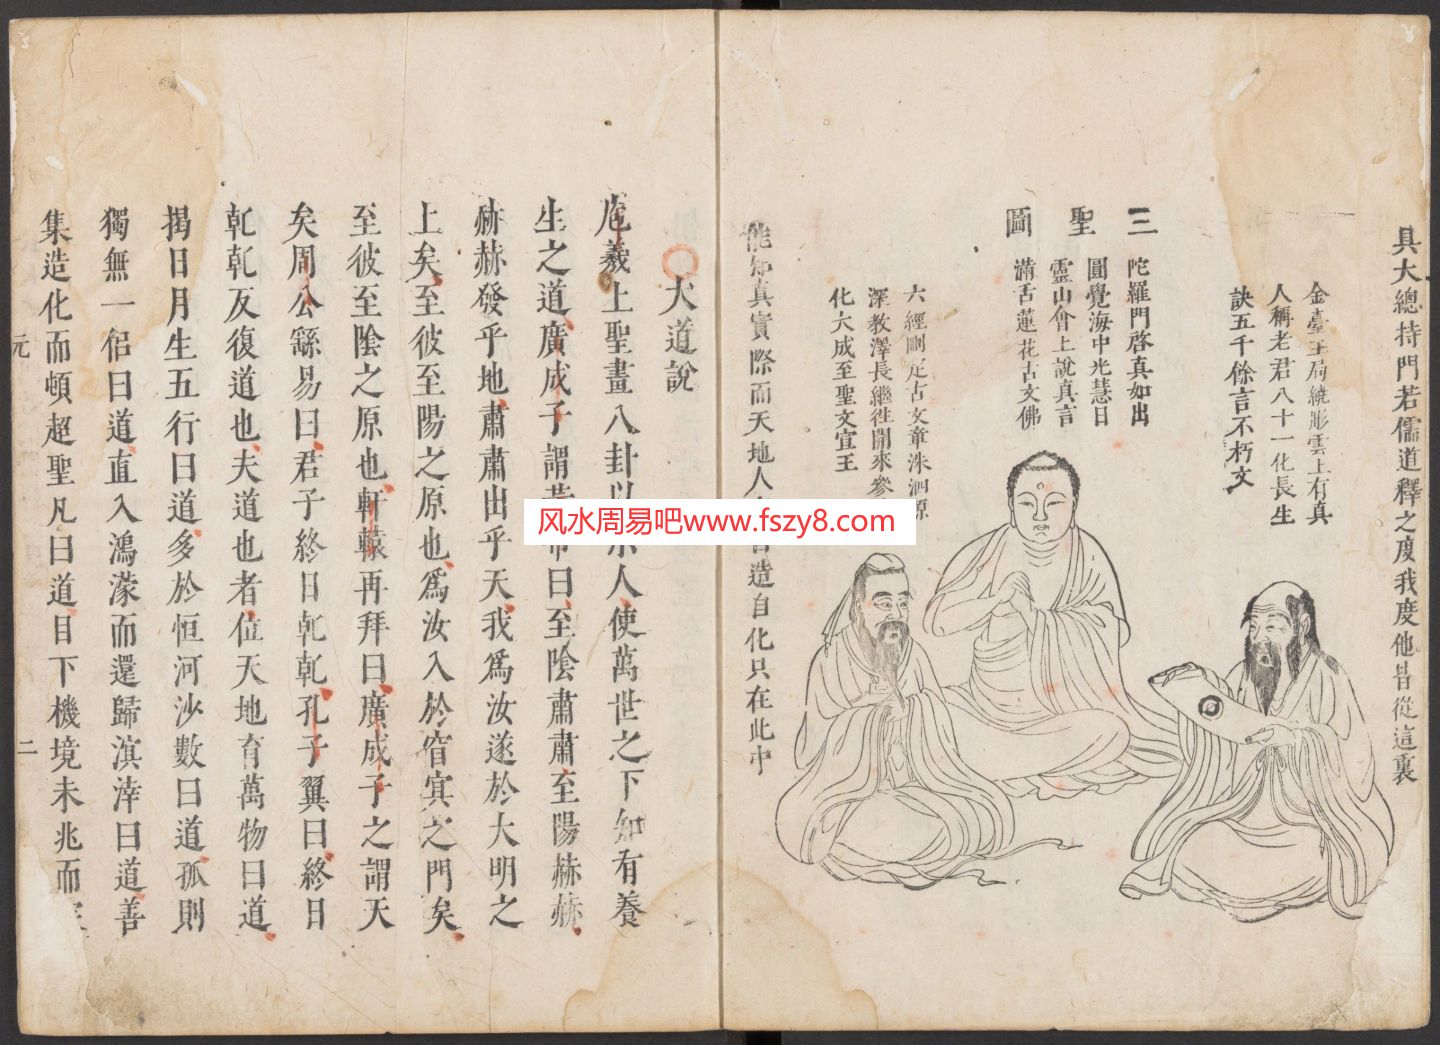 具大總持門若儒道釋之度我度他皆從這裏
三聖圖
金臺玉局繞彤雲上有真
人稱老君八十一化長生
訣五千餘言不朽文
陀羅門啓真如出
圓覺海中光慧日
靈山會上說真言
滿舌蓮花古文佛
六經刪定古文章洙泗源
深教澤長繼往開來參
化六成至聖文宣王
能知真實際而天地人
造自化只在此中
大道說
庖羲上聖畫八卦以示人使萬世之下知有養
生之道廣成子謂黃帝曰至陰肅肅至陽赫赫
赫赫發乎地肅肅出乎天我爲汝遂於大明之
上矣至彼至陽之原也爲汝入於窅冥之門矣
至彼至陰之原也軒轅再拜曰廣成子之謂天
矣周公繇易曰君子終日乹乹孔子翼曰終日
乹乹反復道也夫道也者位天地育萬物曰道
揭日月生五行曰道多於恒河沙數曰道孤則
獨無一侶曰道直入鴻濛而還歸滇涬曰道善
集造化而頓超聖凡曰道目下機境未兆而
元
二
风水周易吧www.fszy8.com